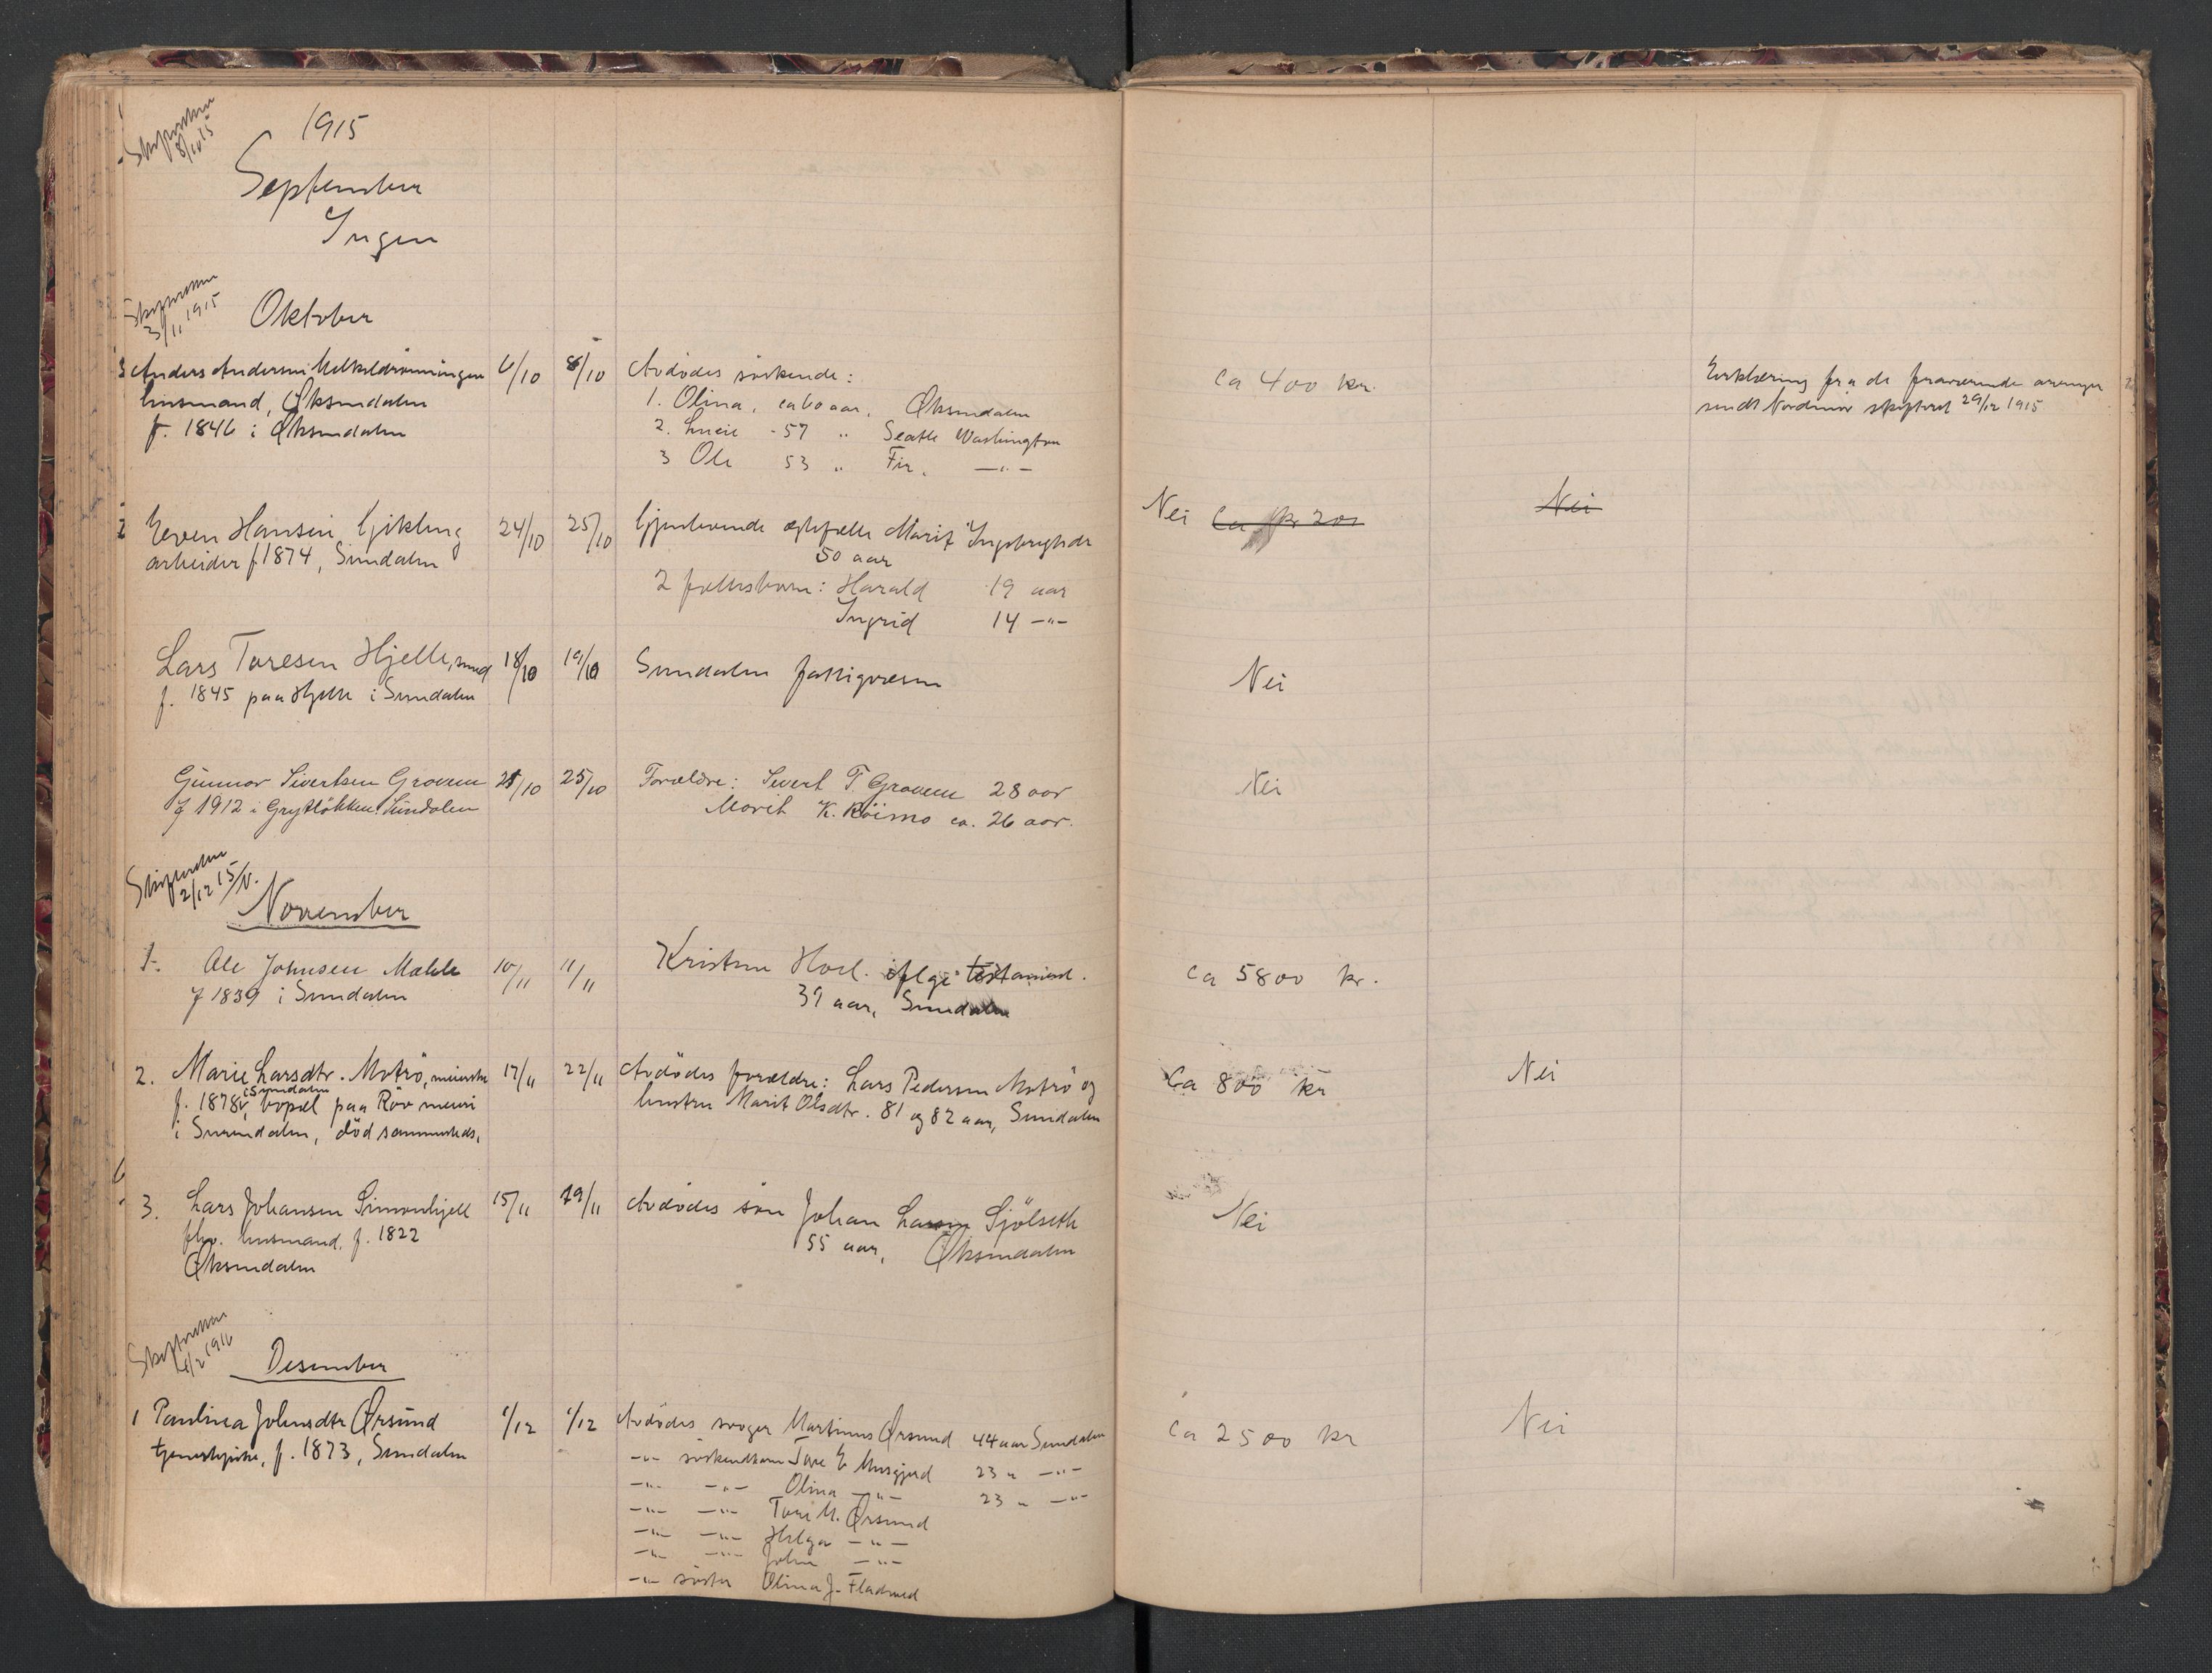 1915
8/10 15
September
Ingen
3/11 1915
Oktober
Anders Andersen
husmand, Øksendalen
f. 1846 i Øksendalen
6/10 8/10 Avdødes søskende:
1. Olina, ca 60 aar, Øksendalen
2. - 57 " Seatle Washington
3 Ole 53 " —"—
ca 400 kr.
Erklæring fra de fraværende arvinger
sendt Nordmør skifteret 29/12 1915
2 Even Hansen Gjikling
arbeider f 1874, Sundalen
24/10 25/10 Gjenlevende ægtefælle Marit Ingebrigtsdr
50 aar
2 fællesbarn: Harald 19 aar
Ingrid 14 —"—
Nei Ca kr 200 Nei
Lars Toresen Hjelle,
f. 1845 paa Hjelle i Sundalen
18/10 19/10 Sundalen fattigvæsen
Nei
Gunnar Sivertsen Grovem
f 1912 i Sundalen
25/10 Forældre: Sivert T. Grovem 28 aar
Marit K. Röimo ca. 26 aar.
Nei
2/12 15/N.
November
1. Ole Johnsen Mæhle
f 1839 i Sundalen
10/11 11/11 Kristen Hoel. ifølge testament.
39 aar, Sundalen
ca 5800 kr.
2. Marie Larsdtr. Motrö, meierske
f. 1878 i Sundalen, bopæl paa Röv meieri
i Surendalen, död sammesteds.
17/11 22/11 Avdödes forældre: Lars Pedersen Motrö og
hustru Marit Olsdtr. 81 og 82 aar, Sundalen
Ca 800 kr Nei
3. Lars Johansen Simonhjell
fhv. husmand. f. 1822
Øksendalen
15/11 19/11 Avdødes søn Johan Larsen Sjölseth
55 aar, Øksendalen
Nei
1916
Desember
1 Paulina Johnsdtr Ørsund
tjenestepike, f. 1873, Sundalen
1/12 1/12 Avdødes svoger Martinus Ørsund 44 aar Sundalen
—"— søskendbarn Tore E Musgjerd 23 " —"—
—"— —"— Olina —"— 23 " —"—
—"— —"— Tore M. Ørsund
—"— —"— Helga —"—
—"— —"— John —"—
—"— søster Olina J. Fladvad
ca 2500 kr Nei